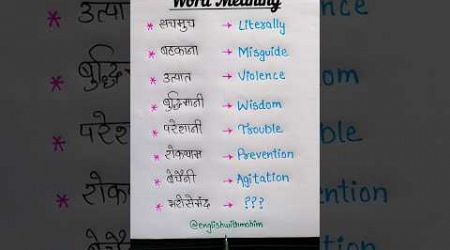 Word Meaning
* सचमुच → Literally
* बहकाना → Misguide
* उत्पात → Violence
* बुद्धिमानी → Wisdom
* परेशानी → Trouble
* रोकथाम → Prevention
* बेचैनी → Agitation
* भरोसेमंद → ???
@englishwithmahim